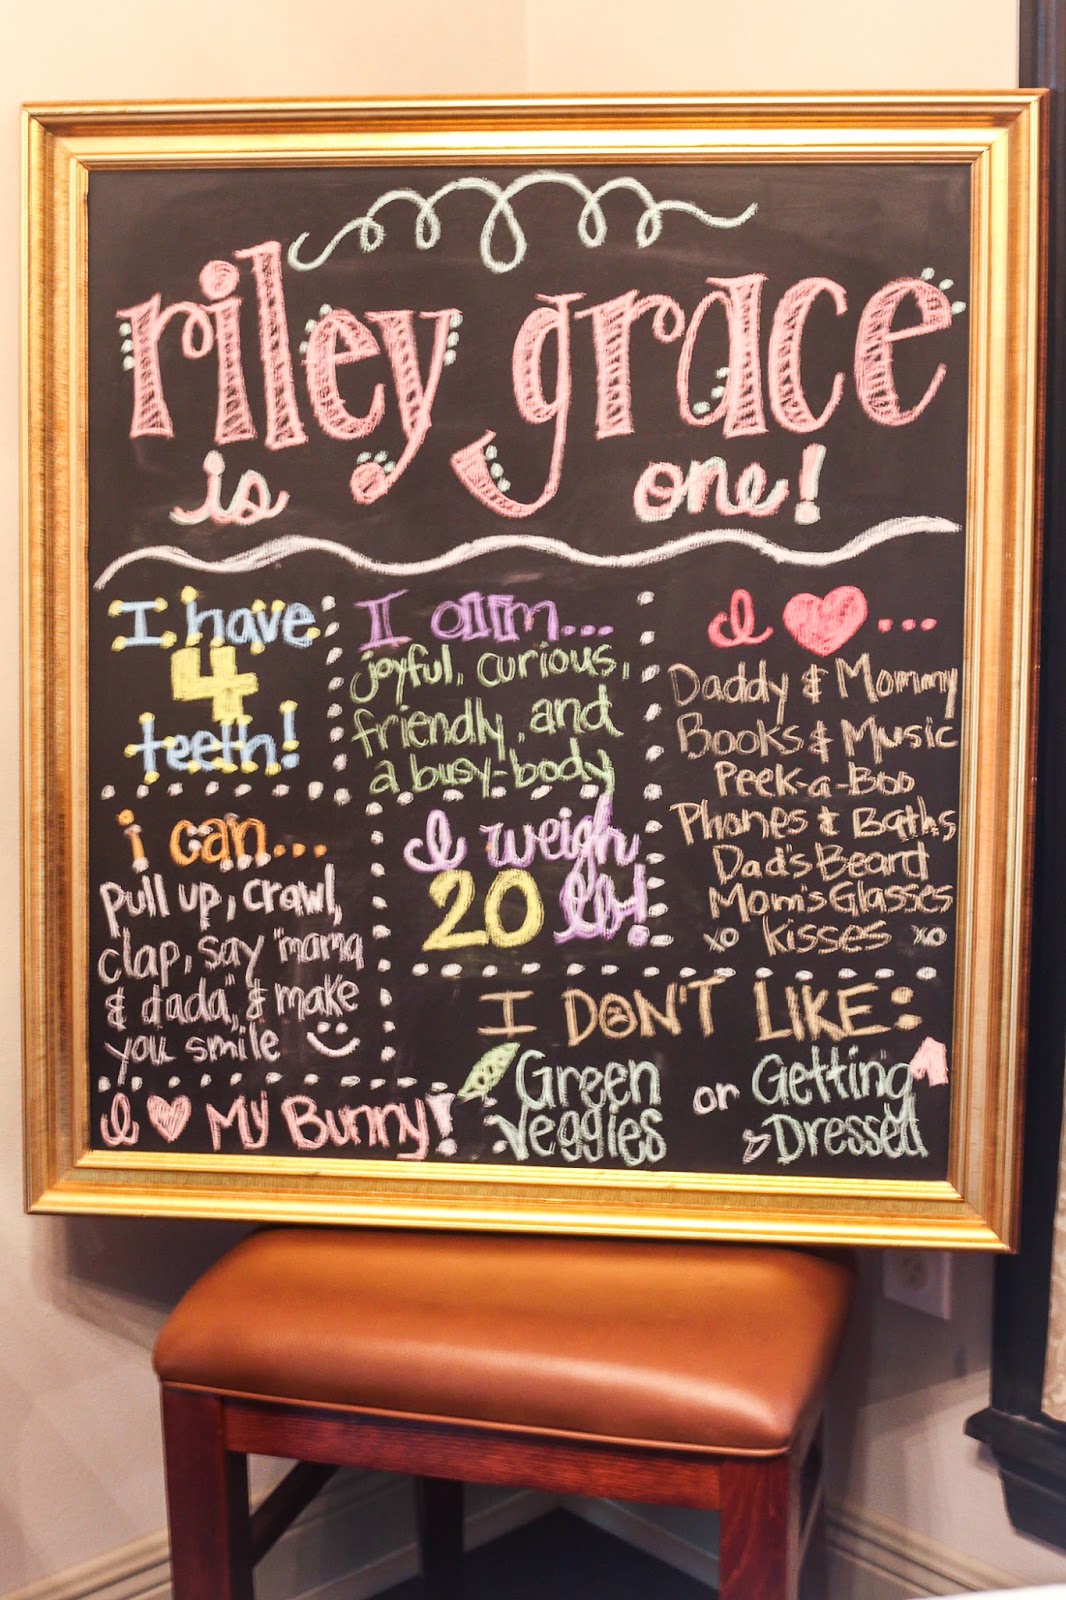 riley grace
is one!
I have
4
teeth!
I am...
joyful, curious,
friendly, and
a busy-body
I ♥...
Daddy & Mommy
Books & Music
Peek-a-Boo
Phones & Baths
Dad's Beard
Mom's Glasses
xo kisses xo
i can...
pull up, crawl,
clap, say "mama
& dada", & make
you smile
I weigh
20 lbs!
I DON'T LIKE:
Green
Veggies
or
Getting
Dressed
I ♥ My Bunny!